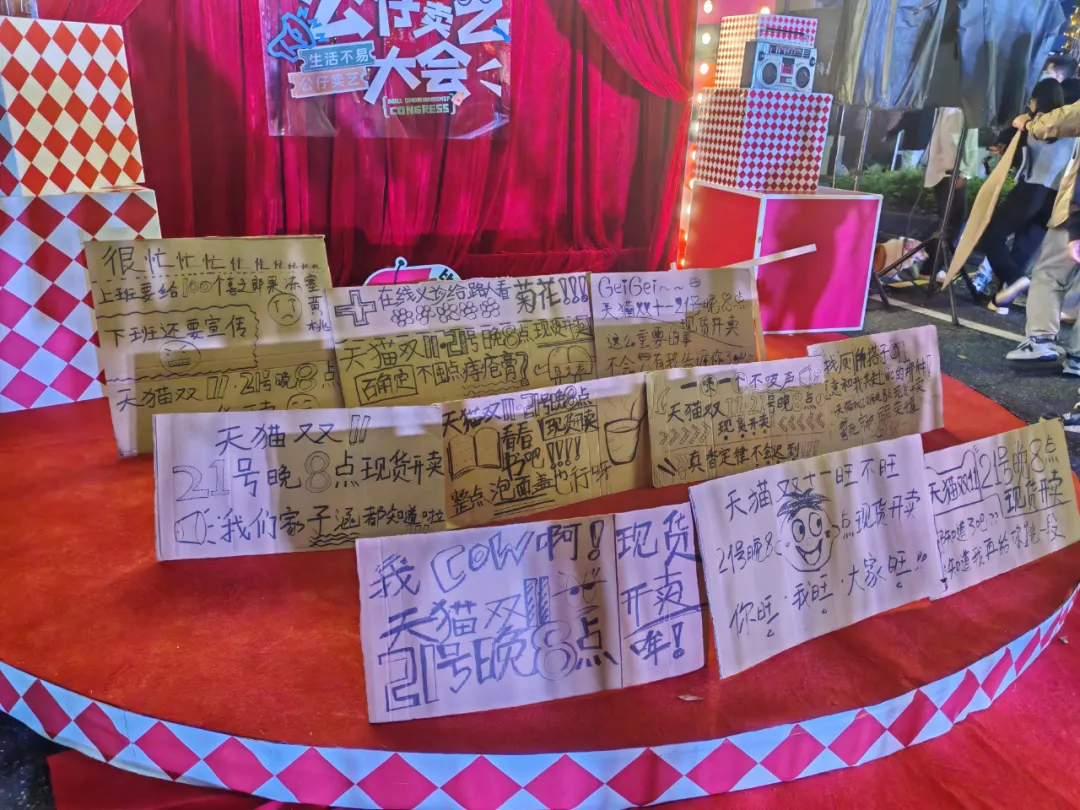 公仔卖艺
大会
生活不易
公仔卖艺
DOLL SHOWMANSHIP
CONGRESS
很忙忙忙忙忙忙
上班要给100个喜之郎果冻塞黄桃
下班还要宣传
天猫双11·21号晚8点
在线义诊给路人看菊花!!!
天猫双11·21号晚8点现货开卖
确定不囤点痔疮膏?
GeiGei~~
天猫双十一21号晚8点
这么重要的事
现货开卖
天猫双11
21号晚8点现货开卖
我们家子涵都知道啦
天猫双11·21号晚8点
看看书吧!!!
现货开卖
整点泡面盖也行呀
一喷一个不吱声
天猫双11 21号晚8点
现货开卖
真香定律不会迟到
我COW啊!
天猫双11
21号晚8点
现货
开卖
哞!
天猫双十一旺不旺
21号晚8点现货开卖
你旺·我旺·大家旺!!!
天猫双11 21号晚8点
现货开卖